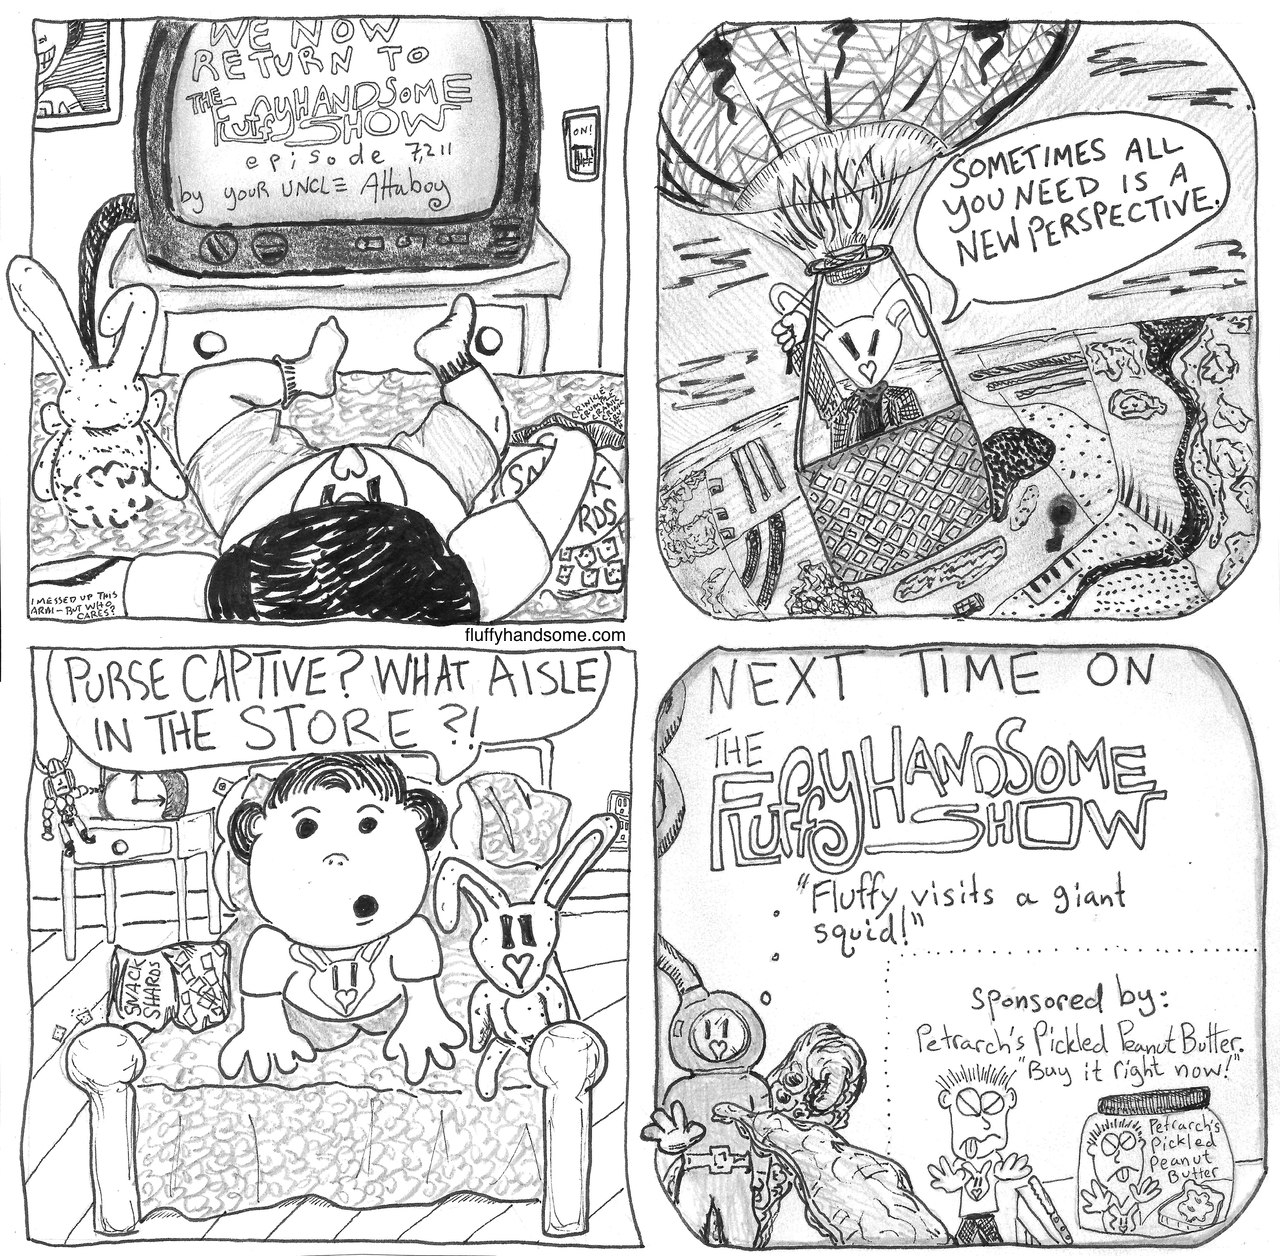 WE NOW
RETURN TO
THE
FluffyHANDSOME
SHOW
episode 7,211
by your UNCLE Attaboy
ON!
OFF
CRINKLE
I MESSED UP THIS
ARM - BUT WHO
CARES?
fluffyhandsome.com
SOMETIMES ALL
YOU NEED IS A
NEW PERSPECTIVE.
PURSE CAPTIVE? WHAT AISLE
IN THE STORE?!
SNACK
SHARDS
NEXT TIME ON
THE
FluffyHANDSOME
SHOW
"Fluffy visits a giant
squid!"
Sponsored by:
Petrarch's Pickled Peanut Butter.
"Buy it right now!"
Petrarch's
Pickled
Peanut
Butter